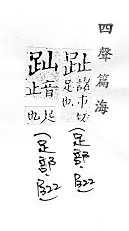 四聲篇海
趾 諸市切足也
(足部 B22)
音止足也
(足部 B22)